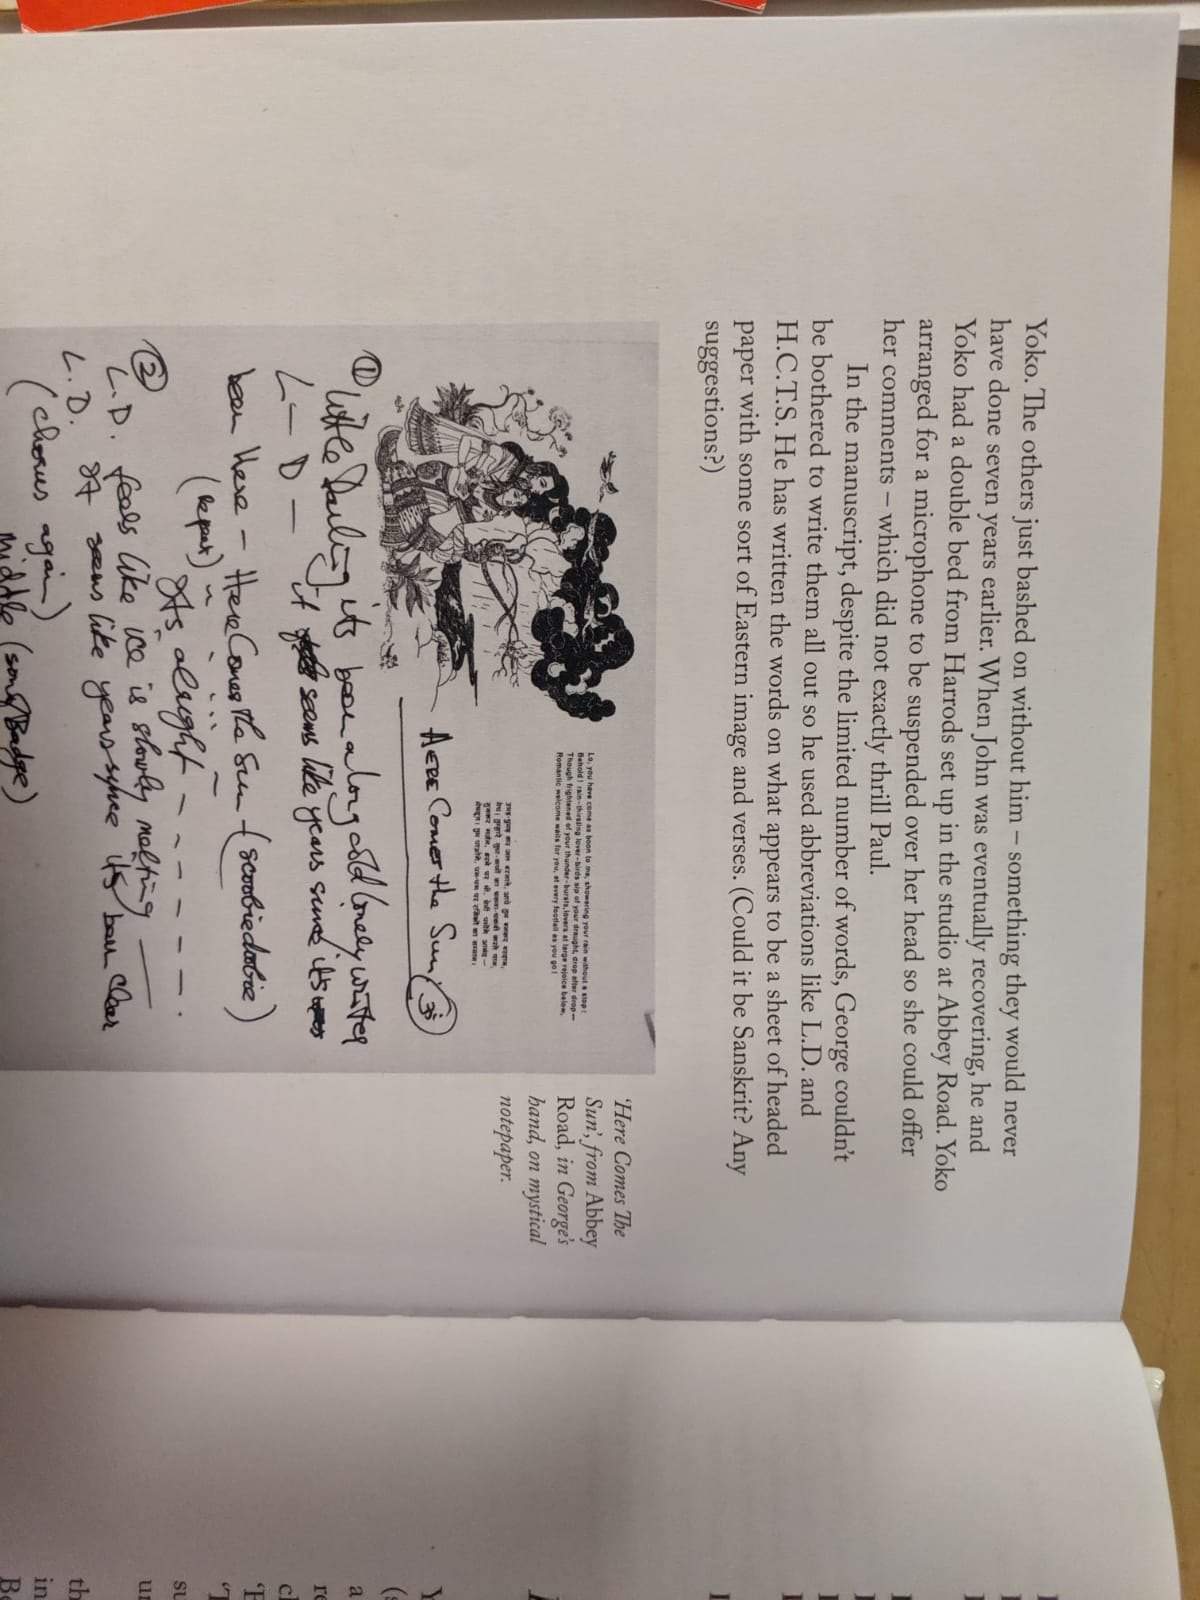 Yoko. The others just bashed on without him – something they would never
have done seven years earlier. When John was eventually recovering, he and
Yoko had a double bed from Harrods set up in the studio at Abbey Road. Yoko
arranged for a microphone to be suspended over her head so she could offer
her comments – which did not exactly thrill Paul.
In the manuscript, despite the limited number of words, George couldn't
be bothered to write them all out so he used abbreviations like L.D. and
H.C.T.S. He has written the words on what appears to be a sheet of headed
paper with some sort of Eastern image and verses. (Could it be Sanskrit? Any
suggestions?)
Lo, you have come as boon to me, showering your rain without a stop :
Behold ! rain-thirsting lover-birds sip of your draught, drop after drop—
Though frightened of your thunder-bursts, lovers at large rejoice below,
Romantic welcome waits for you, at every footfall as you go !
HERE Comes the Sun
ॐ
① little Darling its been a long cold lonely winter
L — D — it seems like years since its
been here – Here Comes the Sun – (scoobiedobie)
(repeat)
Its alright – – – – – – .
② L.D. feels like ice is slowly melting —
L.D. It seems like years since its been clear
(chorus again)
Middle (song Badge)
'Here Comes The
Sun', from Abbey
Road, in George's
hand, on mystical
notepaper.